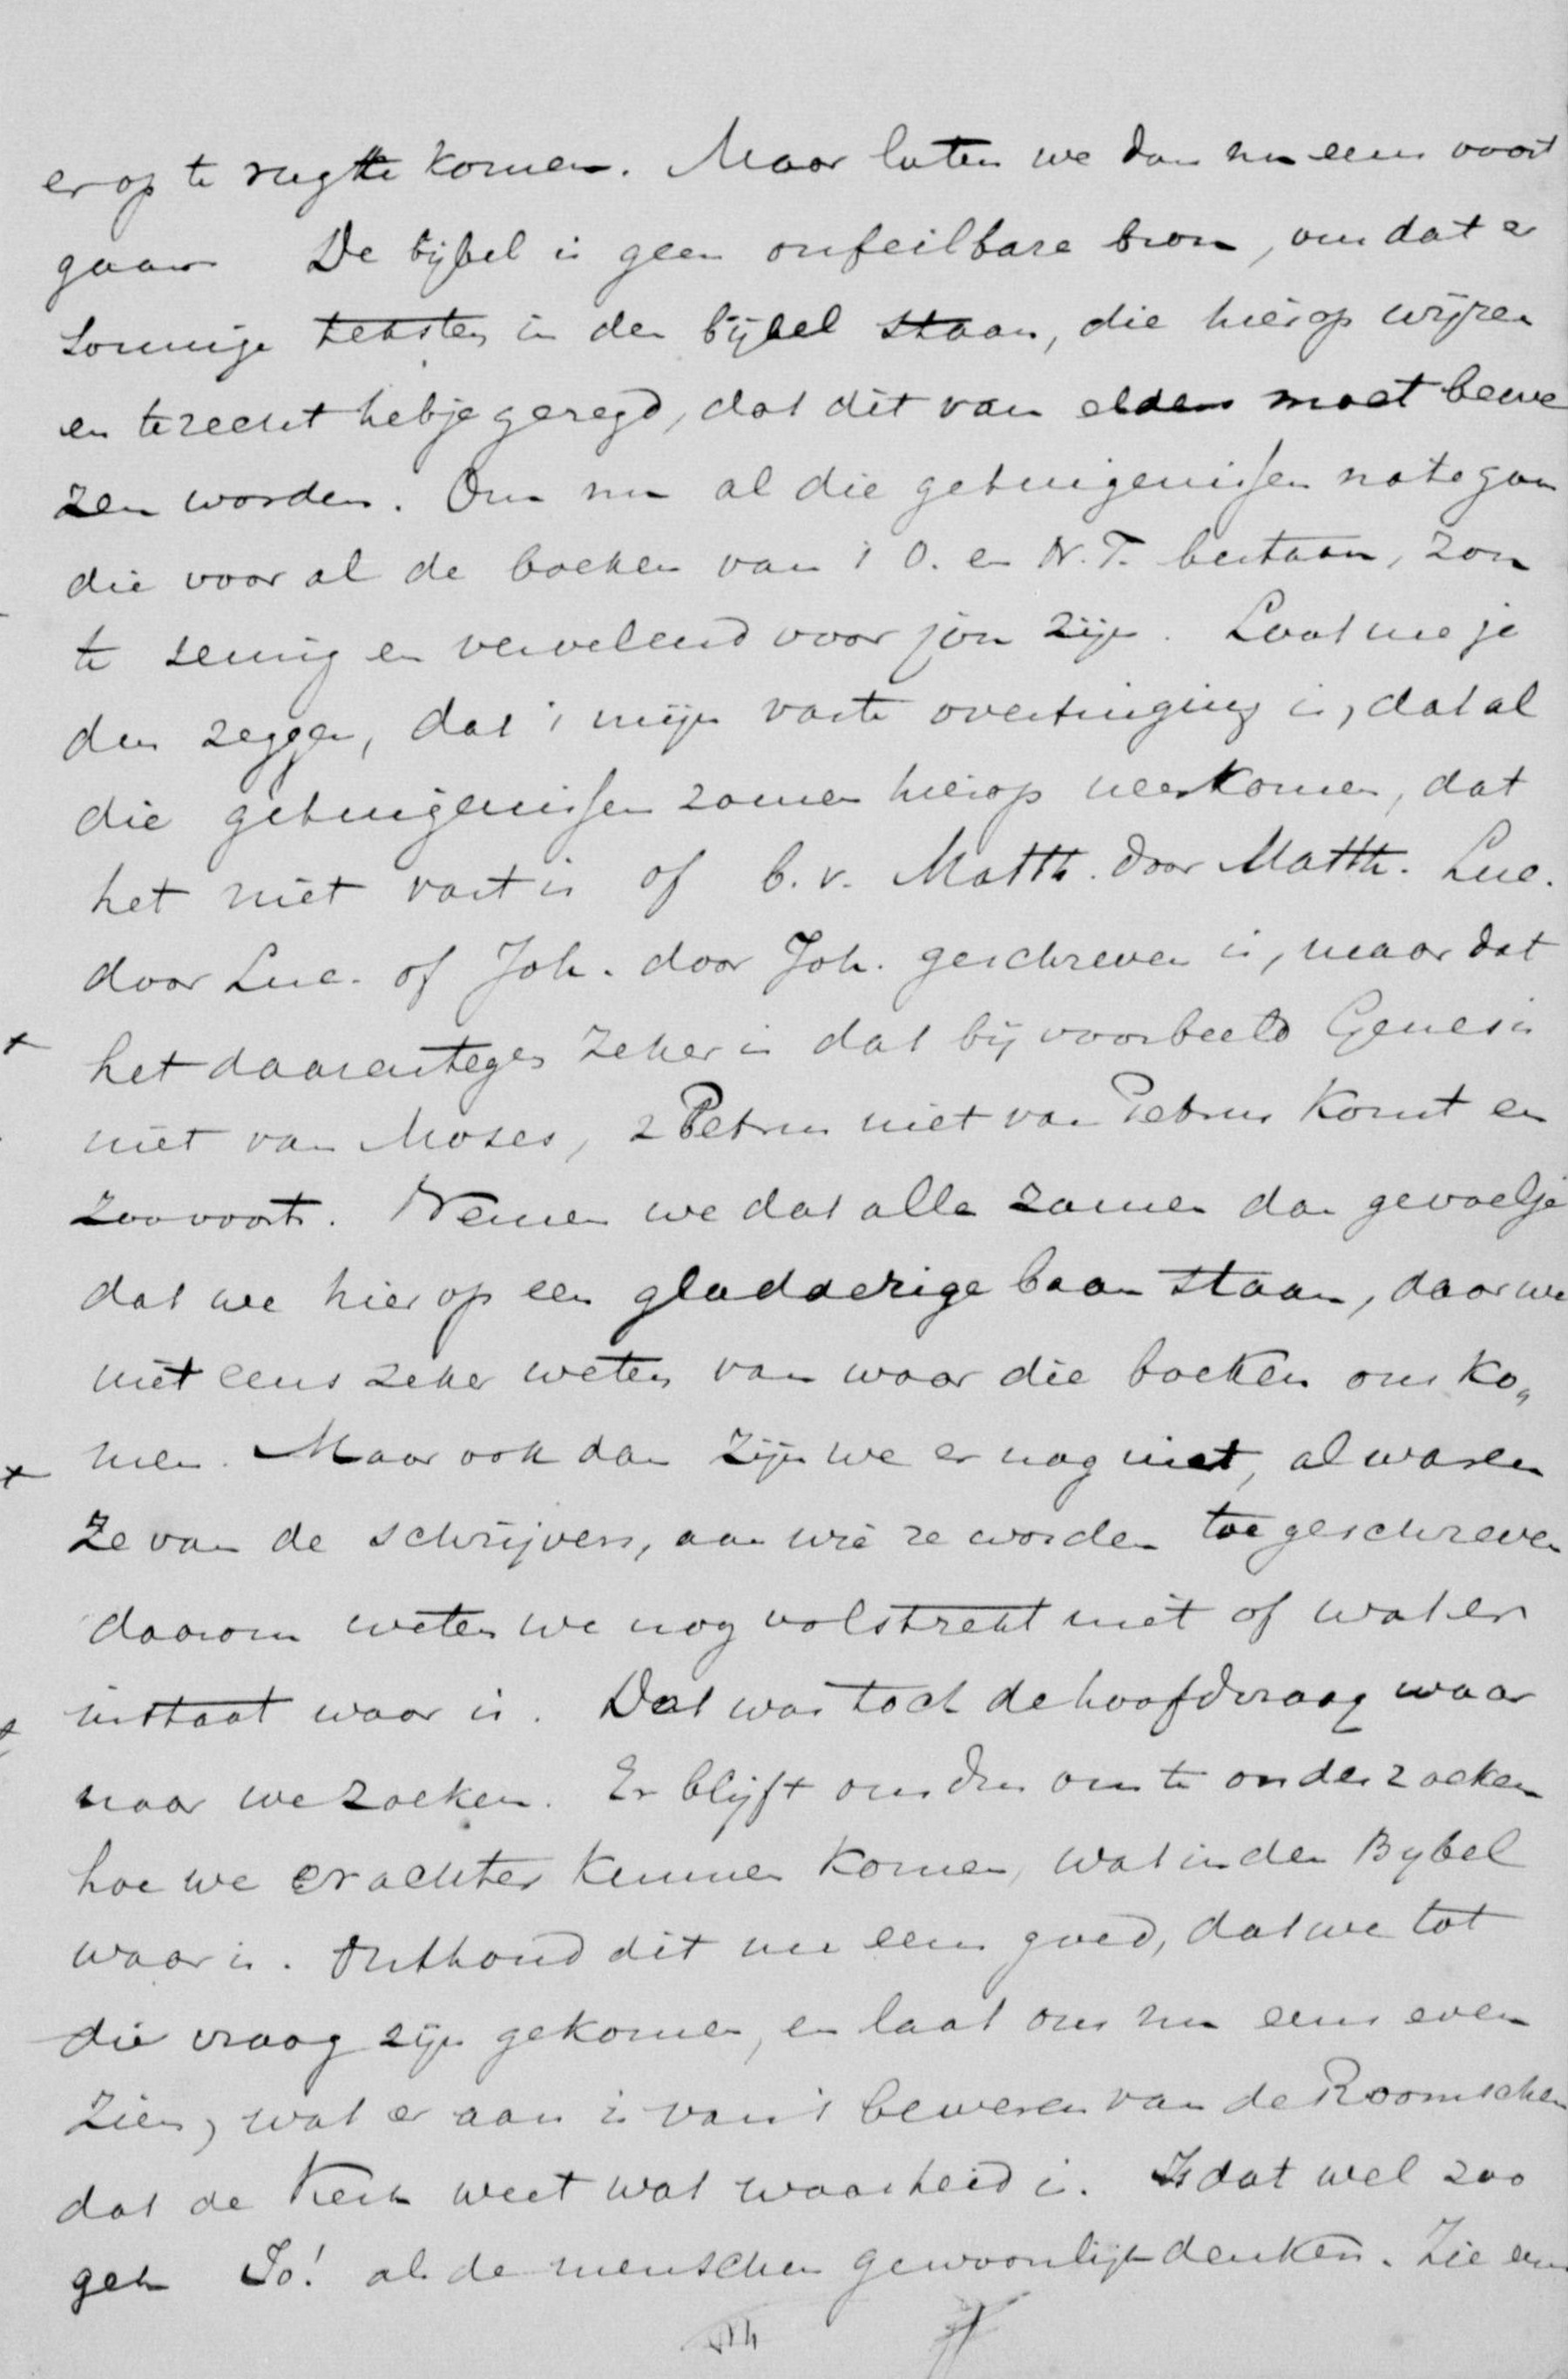 er op te rugtte komen. Maar laten we dan nu eens voort
gaan De bijbel is geen onfeilbare bron, omdat er
sommige teksten in den bijbel staan, die hierop wijzen
en terecht heb je gezegd, dat dit van elders moet bewe
zen worden. Om nu al die getuigenissen na te gaan
die voor al de boeken van 't O. en N.T. bestaan, zou
te en vervelend voor jou zijn. Laat me je
dus zeggen, dat 't mijn vaste overtuiging is, dat al
die getuigenissen zamen hierop neerkomen, dat
het niet vast is of b.v. Matth. door Matth. Luc.
door Luc. of Joh. door Joh. geschreven is, maar dat
het daarentegen zeker is dat bij voorbeeld Genesis
niet van Moses, 2 Petrus niet van Petrus komt en
zoovoorts. Nemen we dat alles zamen dan gevoel je
dat we hier op een gladderige baan staan, daar we
niet eens zeker weten van waar die boeken ons ko„
men. Maar ook dan zijn we er nog niet, al waren
ze van de schrijvers, aan wie ze worden toegeschreven
daarom weten we nog volstrekt niet of wat er
instaat waar is. Dat was toch de hoofdvraag waar
naar we zoeken. Er blijft ons dus om te onderzoeken
hoe we erachter kunnen komen, wat in den Bybel
waar is. Onthoud dit nu eens goed, dat we tot
die vraag zijn gekomen, en laat ons nu eens even
zien, wat er aan is van 't beweren van de Roomschen
dat de Kerk weet wat waarheid is. Is dat wel zoo
gek Jo! als de menschen gewoonlijk denken. Zie eens